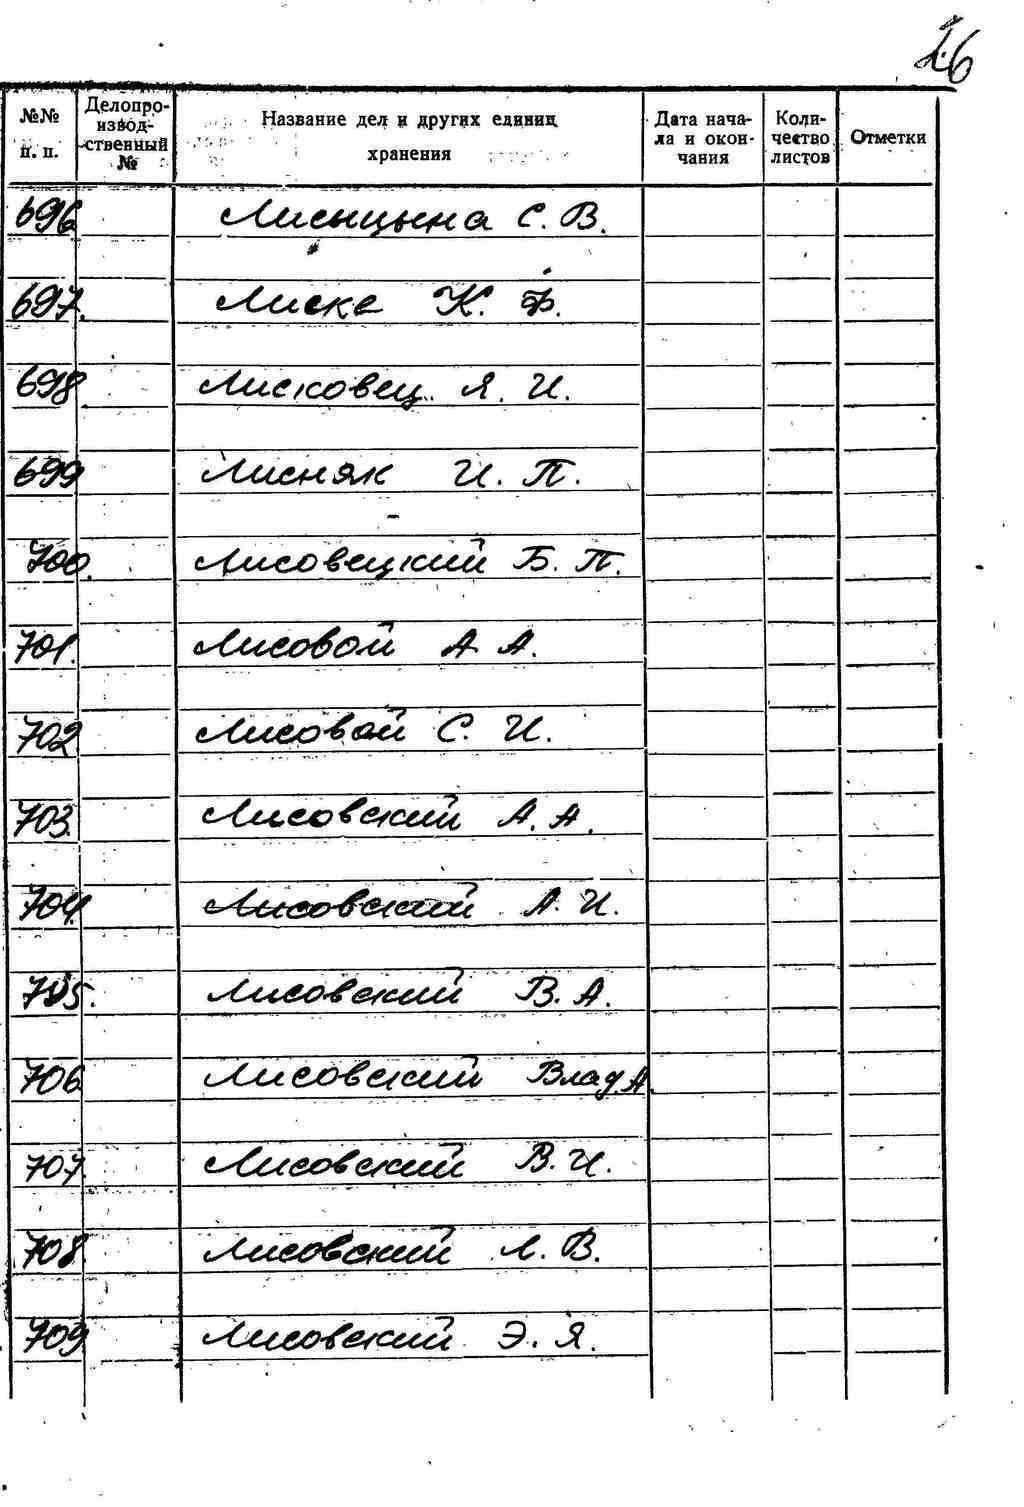 26
№№ п. п.
Делопро-
извод-
ственный
№
Название дел и других единиц
хранения
Дата нача-
ла и окон-
чания
Коли-
чество
листов
Отметки
696. Лисицына С. В.
697. Лиске К. Ф.
698. Лисковец Я. И.
699 Лисняк И. П.
700. Лисовецкий Б. П.
701. Лисовой А. А.
702 Лисовой С. И.
703. Лисовский А. А.
704. Лисовский А. И.
705. Лисовский В. А.
706 Лисовский Влад. А.
707 Лисовский В. И.
708. Лисовский Л. В.
709 Лисовский Э. Я.